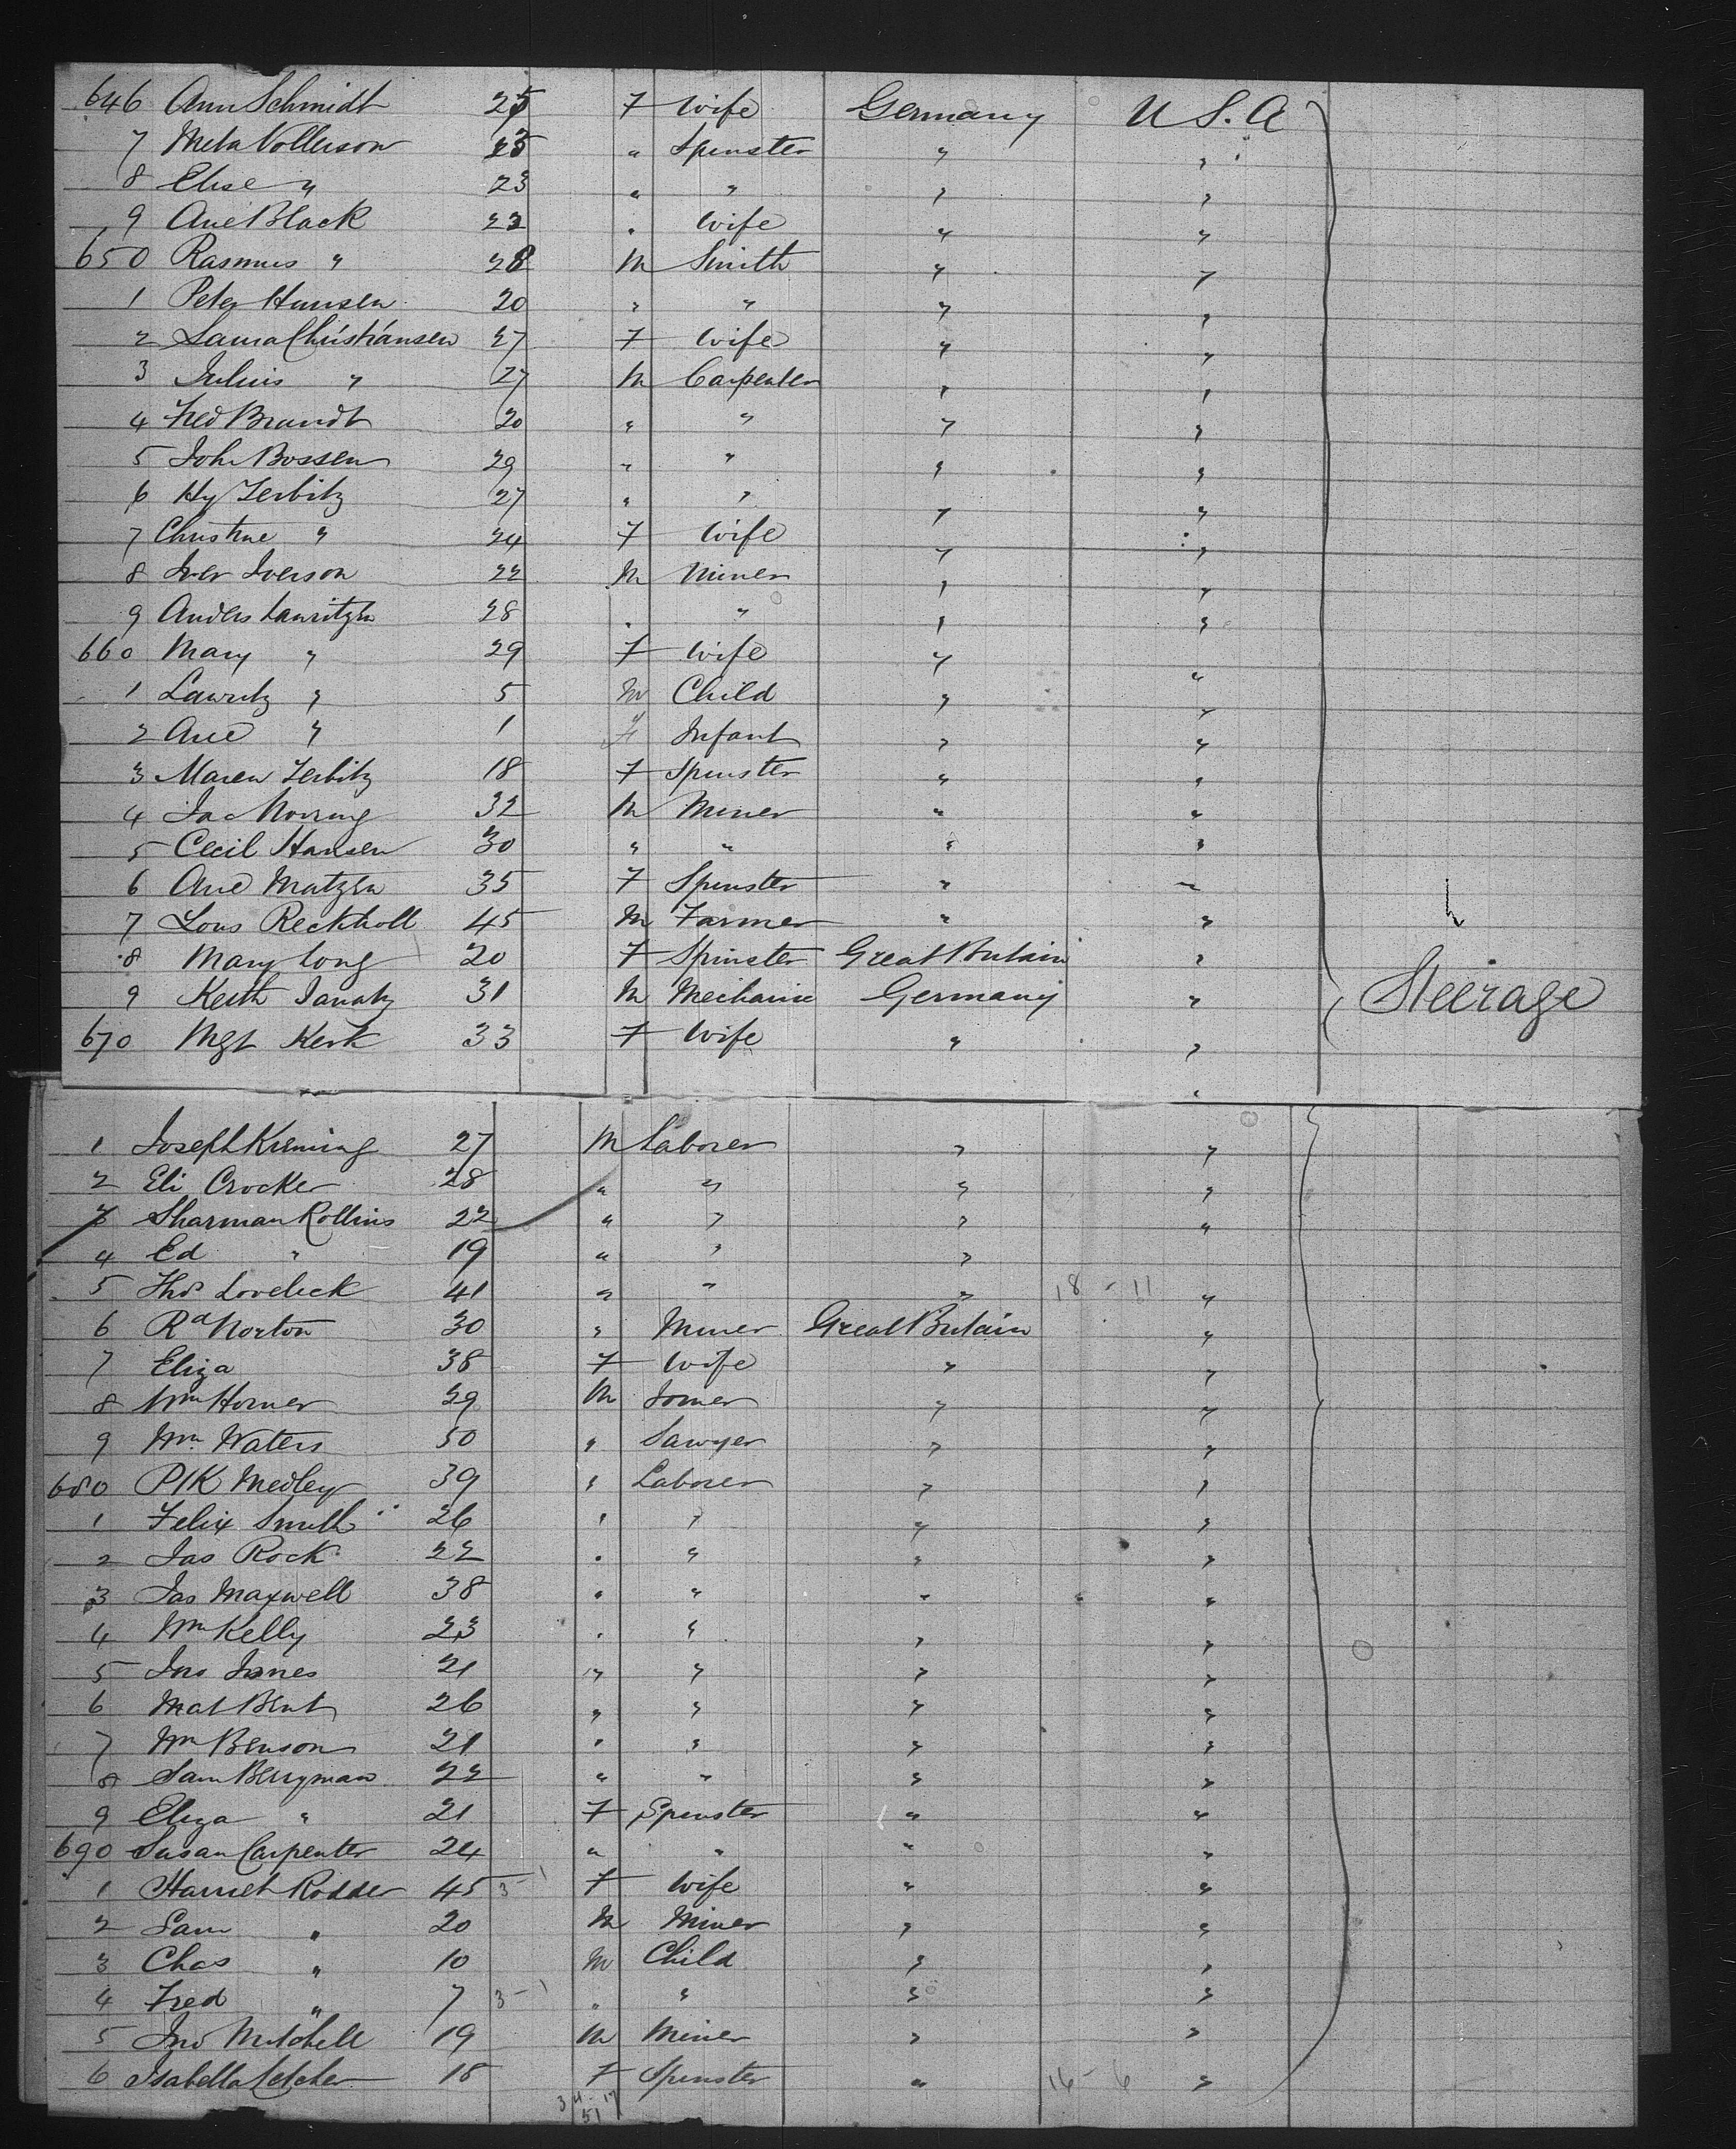 646 Ann Schmidt 25 F Wife Germany U.S.A
7 Meta Vollerson 25 " Spinster " "
8 Elise " 23 " " " "
9 Ane Black 22 " Wife " "
650 Rasmus " 28 M Smith " "
1 Peter Hansen 20 " " " "
2 Laura Christiansen 27 F Wife " "
3 Julius " 27 M Carpenter " "
4 Fred Brandt 20 " " " "
5 Joh Bossen 29 " " " "
6 Hy Zerbitz 27 " " " "
7 Christine " 24 F Wife " "
8 Iver Iverson 22 M Miner " "
9 Anders Lauritzen 28 " " " "
660 Mary " 29 F Wife " "
1 Lauritz " 5 M Child " "
2 Ane " 1 F Infant " "
3 Maren Zerbitz 18 F Spinster " "
4 Jac 32 M Miner " "
5 Cecil Hansen 30 " " " "
6 Ane Matzen 35 F Spinster " "
7 Lous 45 M Farmer " "
8 Mary Long 20 F Spinster Great Britain "
9 Keith 31 M Mechanic Germany " Steerage
670 Mgt Kerk 33 F Wife " "
"
1 Joseph 27 M Laborer " "
2 Eli Crocker 28 " " " "
3 Sharman Rollins 22 " " " "
4 Ed " 19 " " "
5 Thos Lovelick 41 " " " 18 - 11 "
6 Rd Norton 30 " Miner Great Britain "
7 Eliza 38 F Wife " "
8 Wm Horner 29 M Joiner " "
9 Wm Waters 50 " Sawyer " "
680 Ptk Medley 39 " Laborer " "
1 Felix Smith 26 " " " "
2 Jas Rock 22 " " " "
3 Jas Maxwell 38 " " " "
4 Wm Kelly 23 " " " "
5 Jno Jones 21 " " " "
6 Mat Bent 26 " " " "
7 Wm Benson 21 " " " "
8 Sam Berryman 22 " " " "
9 Eliza " 21 F Spinster " "
690 Susan Carpenter 24 " " " "
1 Harriet Rodder 45 3-1 F Wife " "
2 Sam " 20 M Miner " "
3 Chas " 10 M Child " "
4 Fred " 7 3-1 " " " "
5 Jno Mitchell 19 M Miner " "
6 Isabella Letcher 18 F Spinster " 16-6 "
34-17
51